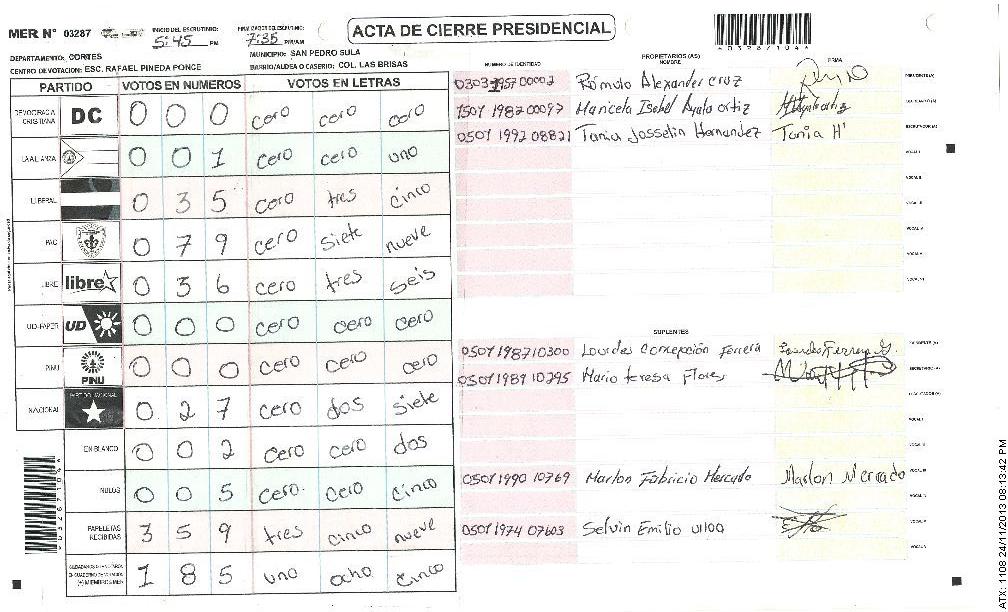 ACTA DE CIERRE PRESIDENCIAL
MER N° 03287
INICIO DEL ESCRUTINIO: 5:45 PM
FINALIZACION DEL ESCRUTINIO: 7:35 PM/AM
DEPARTAMENTO: CORTES
MUNICIPIO: SAN PEDRO SULA
CENTRO DE VOTACION: ESC. RAFAEL PINEDA PONCE
BARRIO/ALDEA O CASERIO: COL. LAS BRISAS
PARTIDO VOTOS EN NUMEROS VOTOS EN LETRAS
DEMOCRACIA CRISTIANA DC 0 0 0 cero cero cero
LA ALIANZA 0 0 1 cero cero uno
LIBERAL 0 3 5 cero tres cinco
PAC 0 7 9 cero siete nueve
LIBRE libre 0 3 6 cero tres seis
UD-FAPER UD 0 0 0 cero cero cero
PINU PINU 0 0 0 cero cero cero
NACIONAL PARTIDO NACIONAL 0 2 7 cero dos siete
EN BLANCO 0 0 2 cero cero dos
NULOS 0 0 5 cero cero cinco
PAPELETAS RECIBIDAS 3 5 9 tres cinco nueve
1 8 5 uno ocho cinco
NUMERO DE IDENTIDAD PROPIETARIOS (AS) NOMBRE FIRMA
Rómulo Alexander Cruz
1501 1982 00097 Maricela Isabel Ayala ortiz
0501 1992 08821 Tania Josselin Hernandez Tania H'
SUPLENTES
0501 1987 10300 Lourdes Concepción Ferrera
0501 1989 10295 Mario teresa Flores
0501 1990 10769 Marlon Fabricio Mercado Marlon Mercado
0501 1974 07603 Selvin Emilio Ulloa
ATX: 1108 24/11/2013 08:13:42 PM